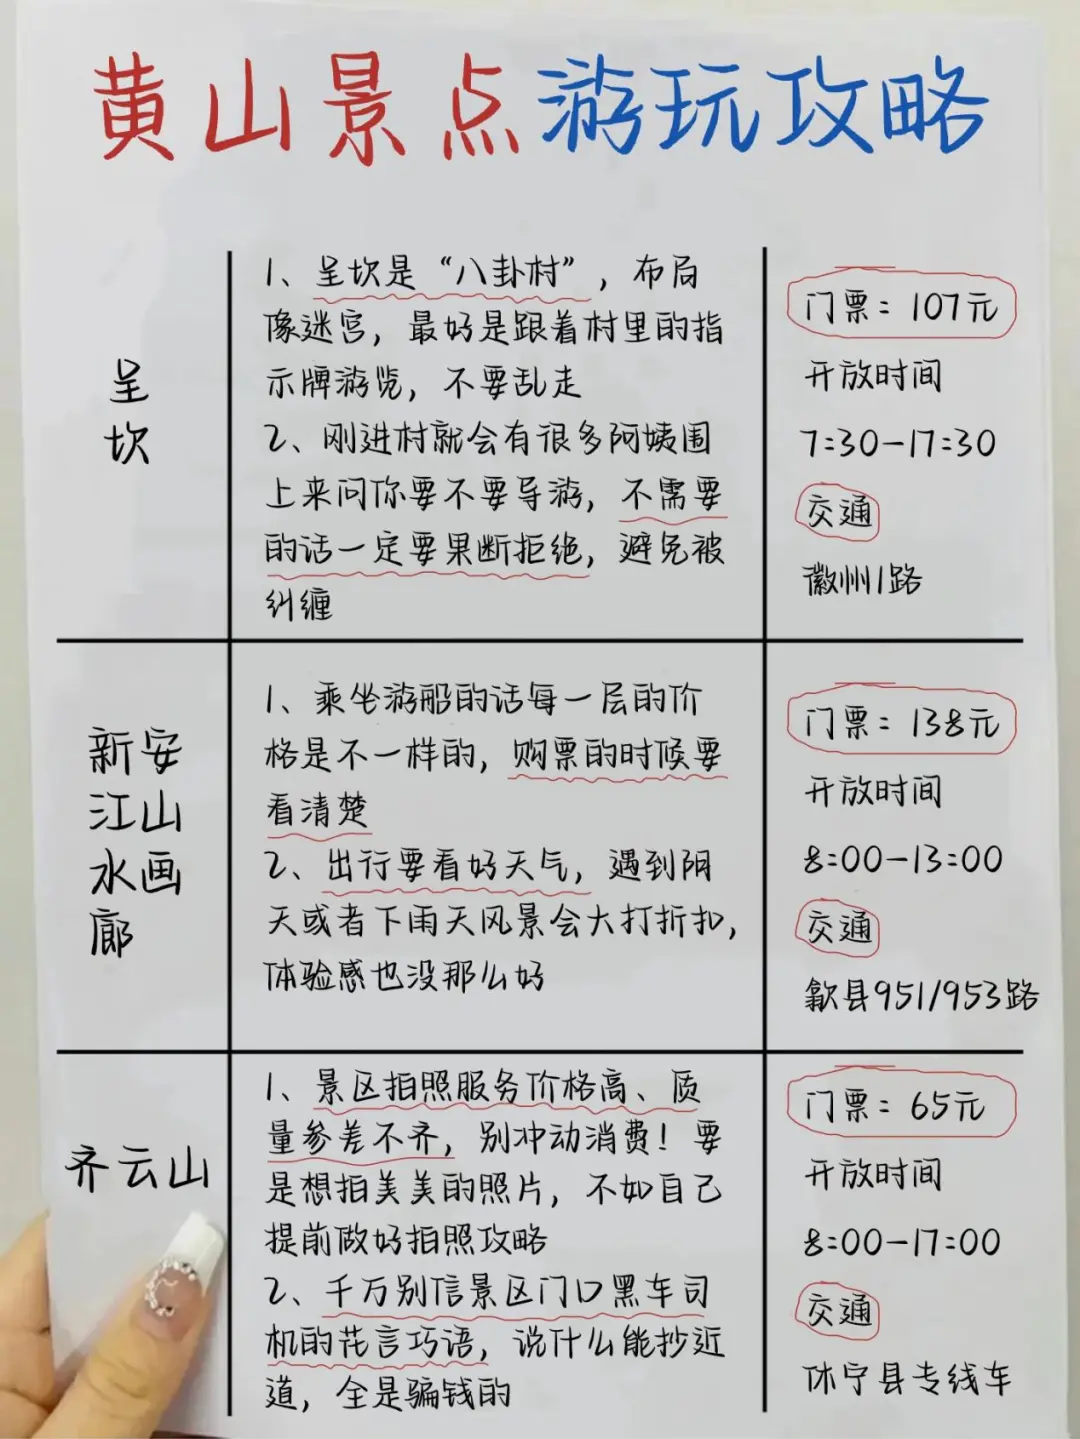 黄山景点游玩攻略
呈
坎
1、呈坎是“八卦村”，布局
像迷宫，最好是跟着村里的指
示牌游览，不要乱走
2、刚进村就会有很多阿姨围
上来问你要不要导游，不需要
的话一定要果断拒绝，避免被
纠缠
门票：107元
开放时间
7:30-17:30
交通
徽州1路
新安
江山
水画
廊
1、乘坐游船的话每一层的价
格是不一样的，购票的时候要
看清楚
2、出行要看好天气，遇到阴
天或者下雨天风景会大打折扣，
体验感也没那么好
门票：138元
开放时间
8:00-13:00
交通
歙县951/953路
齐云山
1、景区拍照服务价格高、质
量参差不齐，别冲动消费！要
是想拍美美的照片，不如自己
提前做好拍照攻略
2、千万别信景区门口黑车司
机的花言巧语，说什么能抄近
道，全是骗钱的
门票：65元
开放时间
8:00-17:00
交通
休宁县专线车